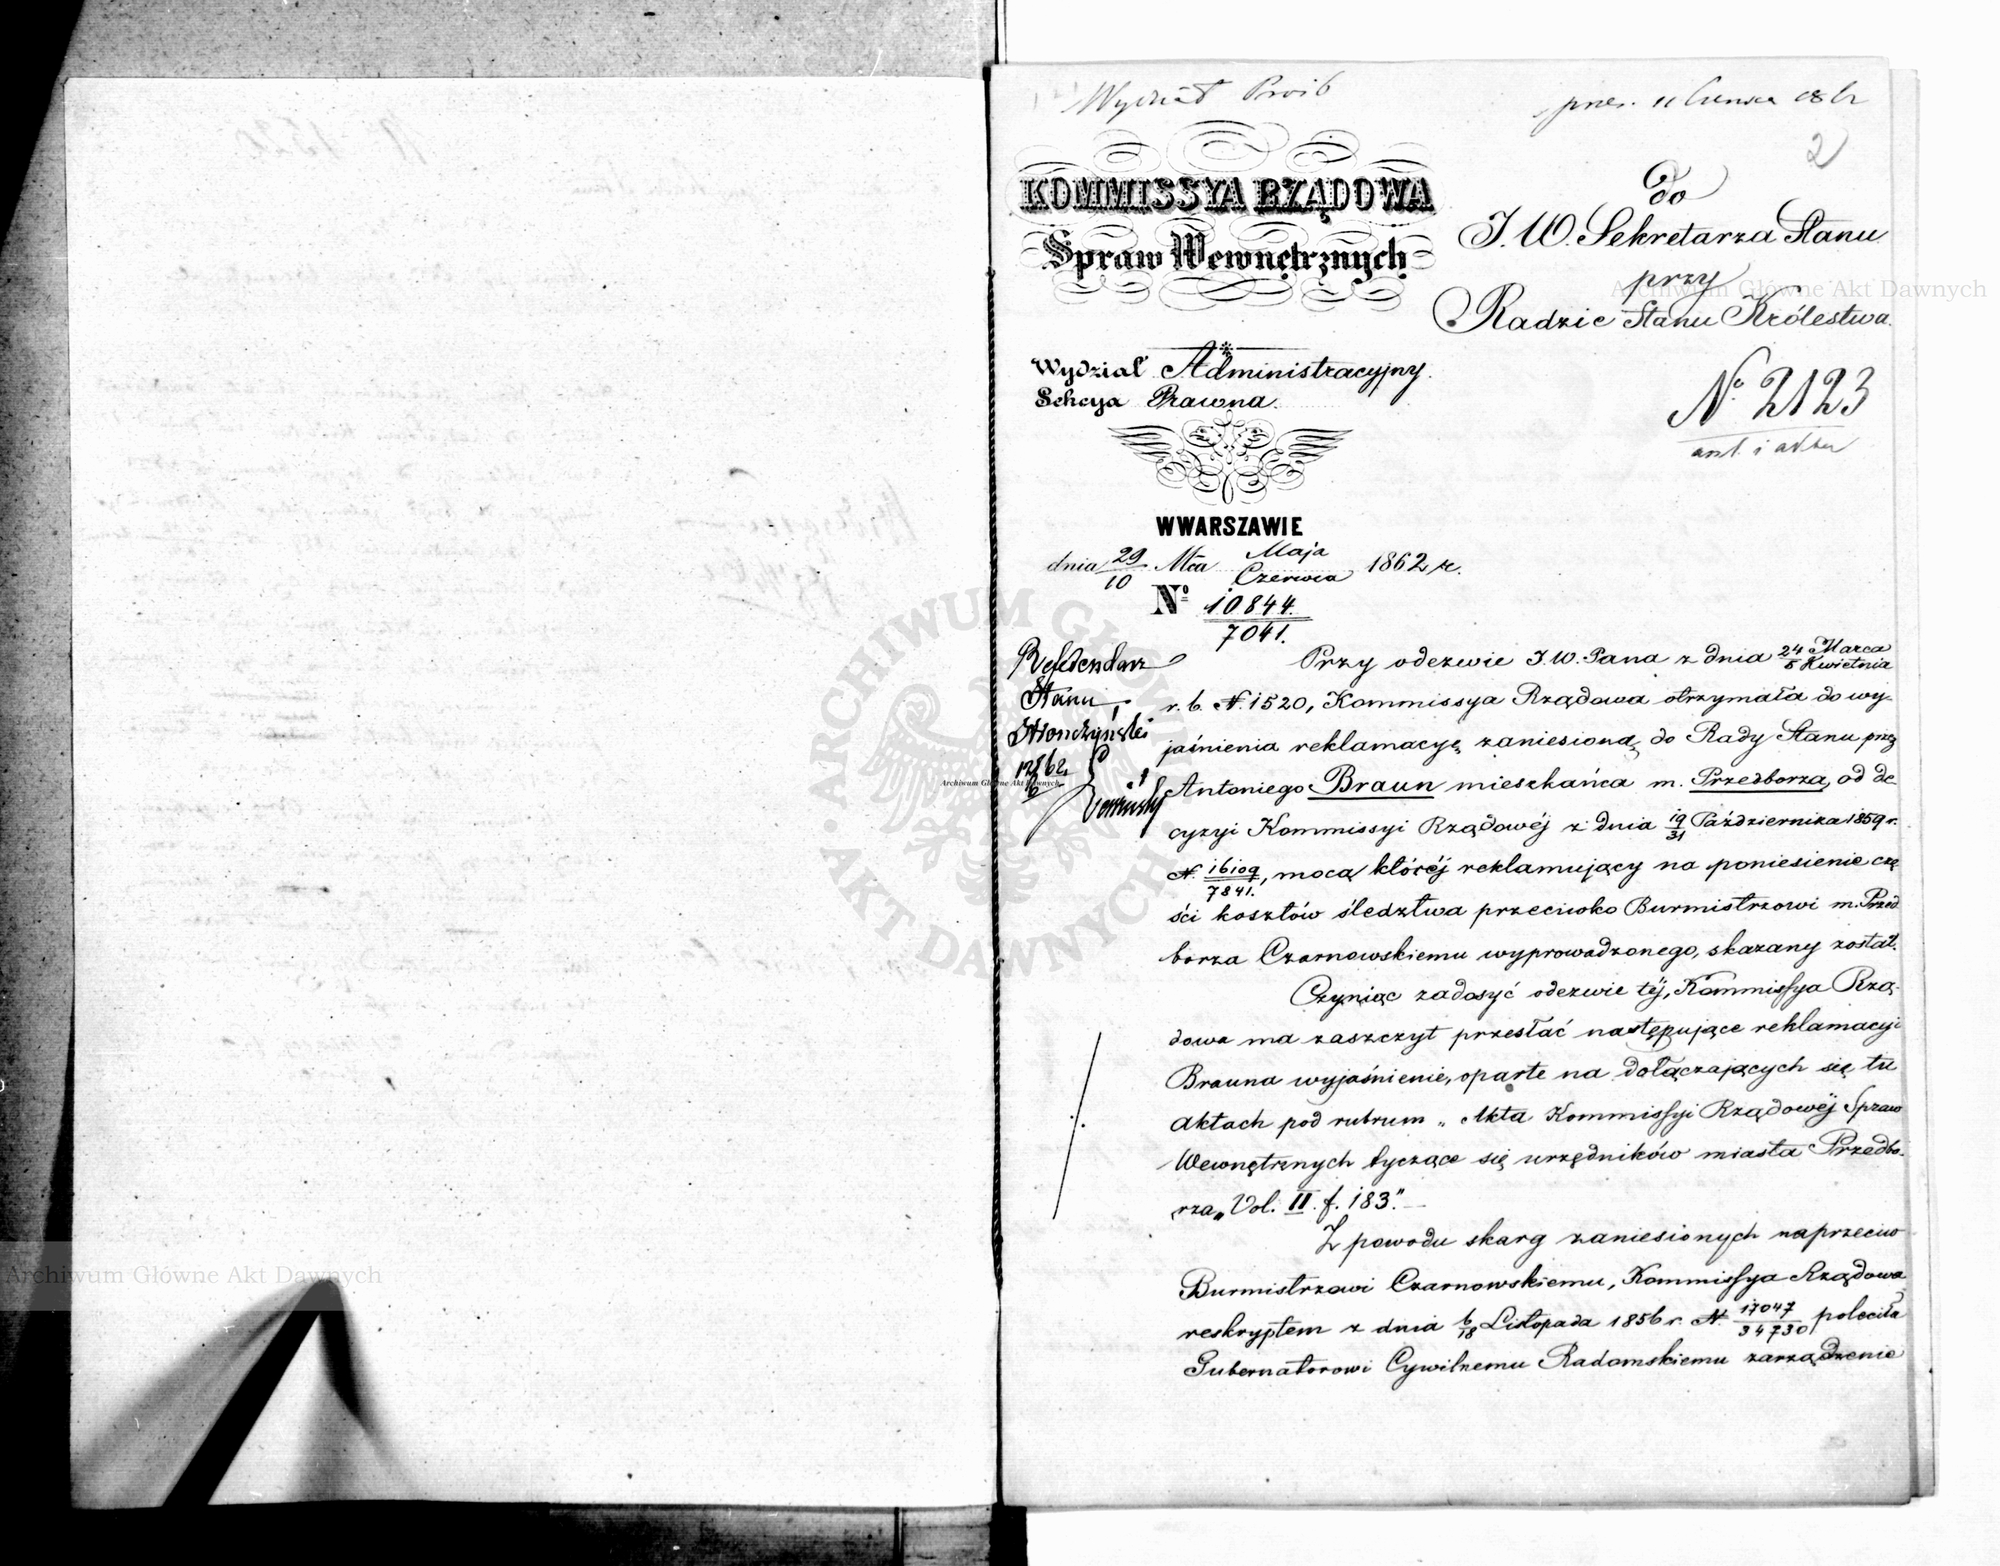 Wydział Próśb
prez. 11 Czerwca 1862
2
KOMMISSYA RZĄDOWA
Spraw Wewnętrznych
do
J.W. Sekretarza Stanu
przy
Radzie Stanu Królestwa.
Wydział Administracyjny.
Sekcya Prawna.
No 2123
W WARSZAWIE
dnia 29/10 Mca Maja/Czerwca 1862 r.
No 10844./7041.
Referendarz
Stanu
Stronczyński
1862
Przy odezwie J.W. Pana z dnia 24 Marca/5 Kwietnia
r. b. N. 1520, Kommissya Rządowa otrzymała do wy-
jaśnienia reklamacyę zaniesioną do Rady Stanu przez
Antoniego Braun mieszkańca m. Przedborza, od de-
cyzyi Kommissyi Rządowéj z dnia 19/31 Października 1859 r.
N. 16109/7841., mocą któréj reklamujący na poniesienie czę-
ści kosztów śledztwa przeciwko Burmistrzowi m. Przed-
borza Czarnowskiemu wyprowadzonego, skazany został.
Czyniąc zadosyć odezwie téj, Kommissya Rzą-
dowa ma zaszczyt przesłać następujące reklamacyi
Brauna wyjaśnienie, oparte na dołączających się tu
aktach pod rubrum „Akta Kommissyi Rządowéj Spraw
Wewnętrznych tyczące się urzędników miasta Przedbo-
rza„ Vol. II. f. 183."
Z powodu skarg zaniesionych naprzeciw
Burmistrzowi Czarnowskiemu, Kommissya Rządowa
reskryptem z dnia 6/18 Listopada 1856 r. N. 17047/34730 poleciła
Gubernatorowi Cywilnemu Radomskiemu zarządzenie
Archiwum Główne Akt Dawnych
Archiwum Główne Akt Dawnych
Archiwum Główne Akt Dawnych
ARCHIWUM GŁÓWNE AKT DAWNYCH